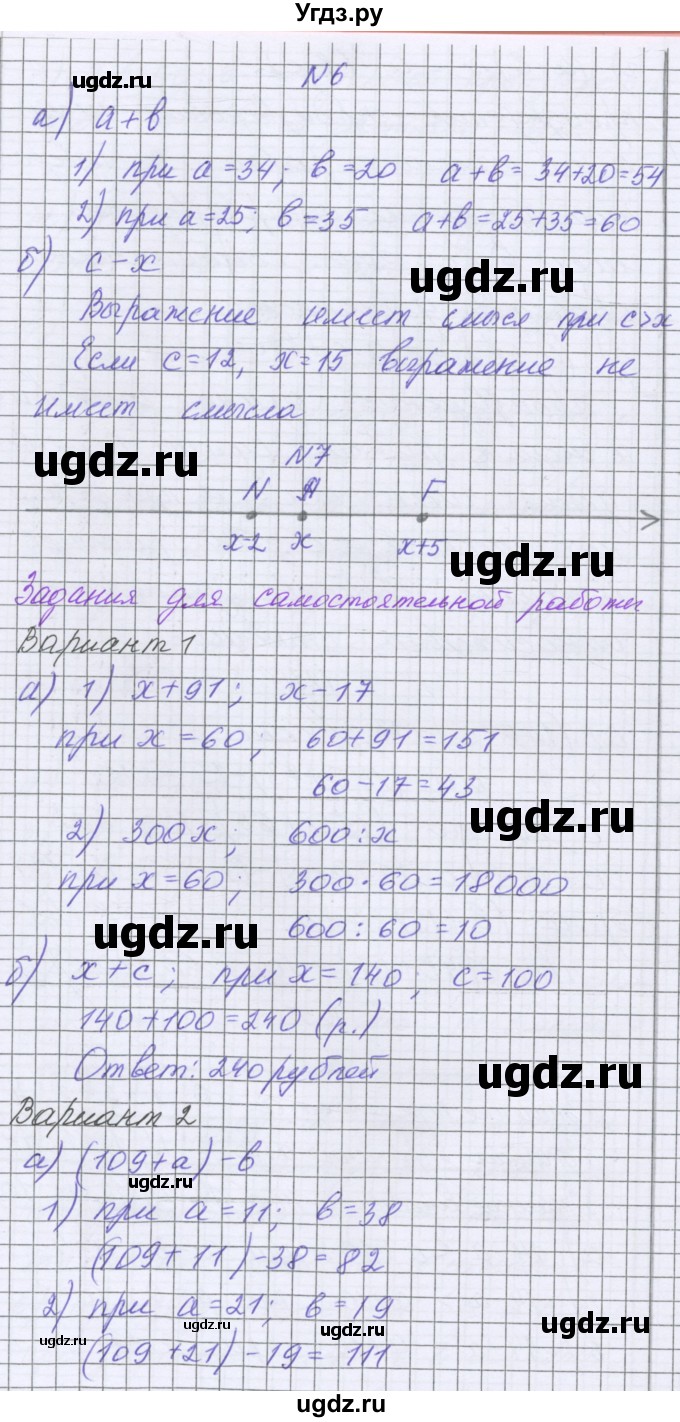 Угдз.ру
ugdz.ru
N6
а) а+в
1) при а=34; в=20 а+в= 34+20=54
2) при а=25; в=35 а+в=25+35=60
б) с-х
ugdz.ru
Выражение имеет смысл при с>х
Если с=12, х=15 выражение не
имеет смысла
ugdz.ru
N7
N F
х-2 х х+5
ugdz.ru
Задания для самостоятельной работы
Вариант 1
а) 1) х+91; х-17
при х=60; 60+91=151
60-17=43
ugdz.ru
2) 300х; 600:х
при х=60; 300·60=18000
ugdz.ru
600:60=10
б) х+с; при х=140; с=100
140+100=240 (р.)
Ответ: 240 рублей
ugdz.ru
Вариант 2
а) (109+а)-в
ugdz.ru
1) при а=11; в=38
(109+11)-38=82
2) при а=21; в=19
ugdz.ru ugdz.ru ugdz.ru ugdz.ru
(109+21)-19= 111
ugdz.ru